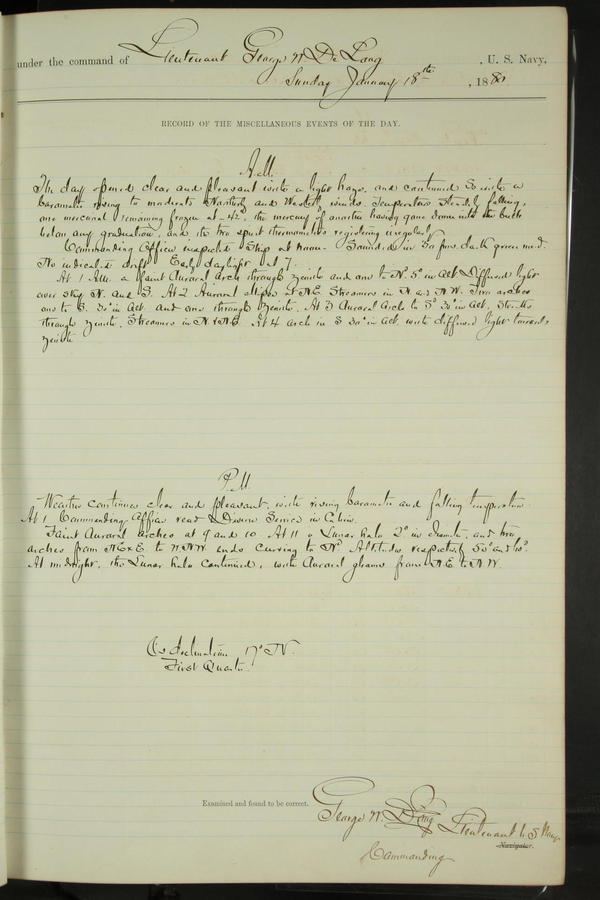 under the command of Lieutenant George W. De Long, U. S. Navy,
Sunday January 18th, 1880
RECORD OF THE MISCELLANEOUS EVENTS OF THE DAY.
A.M.
The day opened clear and pleasant with a light haze, and continued so with a
barometer rising to moderate and winds. Temperature steadily falling,
one mercurial remaining frozen at -42°, the mercury of another having gone down into the bulb
below any graduation, and the two spirit thermometers registering irregularly.
Commanding Officer inspected Ship at noon. Sounded in fms. dark green mud.
No indicated drift. Early daylight at 7.
At 1 A.M. a faint Auroral arch through zenith and one to N. 5° in alt. Diffused light
over sky N. and S. At 2 Auroral in NE Streamers in N and NW. Two arches
one to S. 30° in alt. and one through zenith. At 3 Auroral Arch to S° 30° in alt.
through zenith. Streamers in N & NE. At 4 arch in S 30° in alt. with diffused light towards
zenith.
P.M.
Weather continues clear and pleasant, with rising barometer and falling temperature
At 1 Commanding Officer read Divine Service in Cabin.
Faint Auroral arches at 9 and 10. At 11 a Lunar halo 2° in diameter, and two
arches from to NNW ends curving to Nd. Altitudes respectively 50° and 10°.
At midnight, the Lunar halo continued, with Auroral gleams from NE to NW.
declination 17° N.
First Quarter.
Examined and found to be correct.
George W. De Long Lieutenant U.S. Navy
Navigator.
Commanding